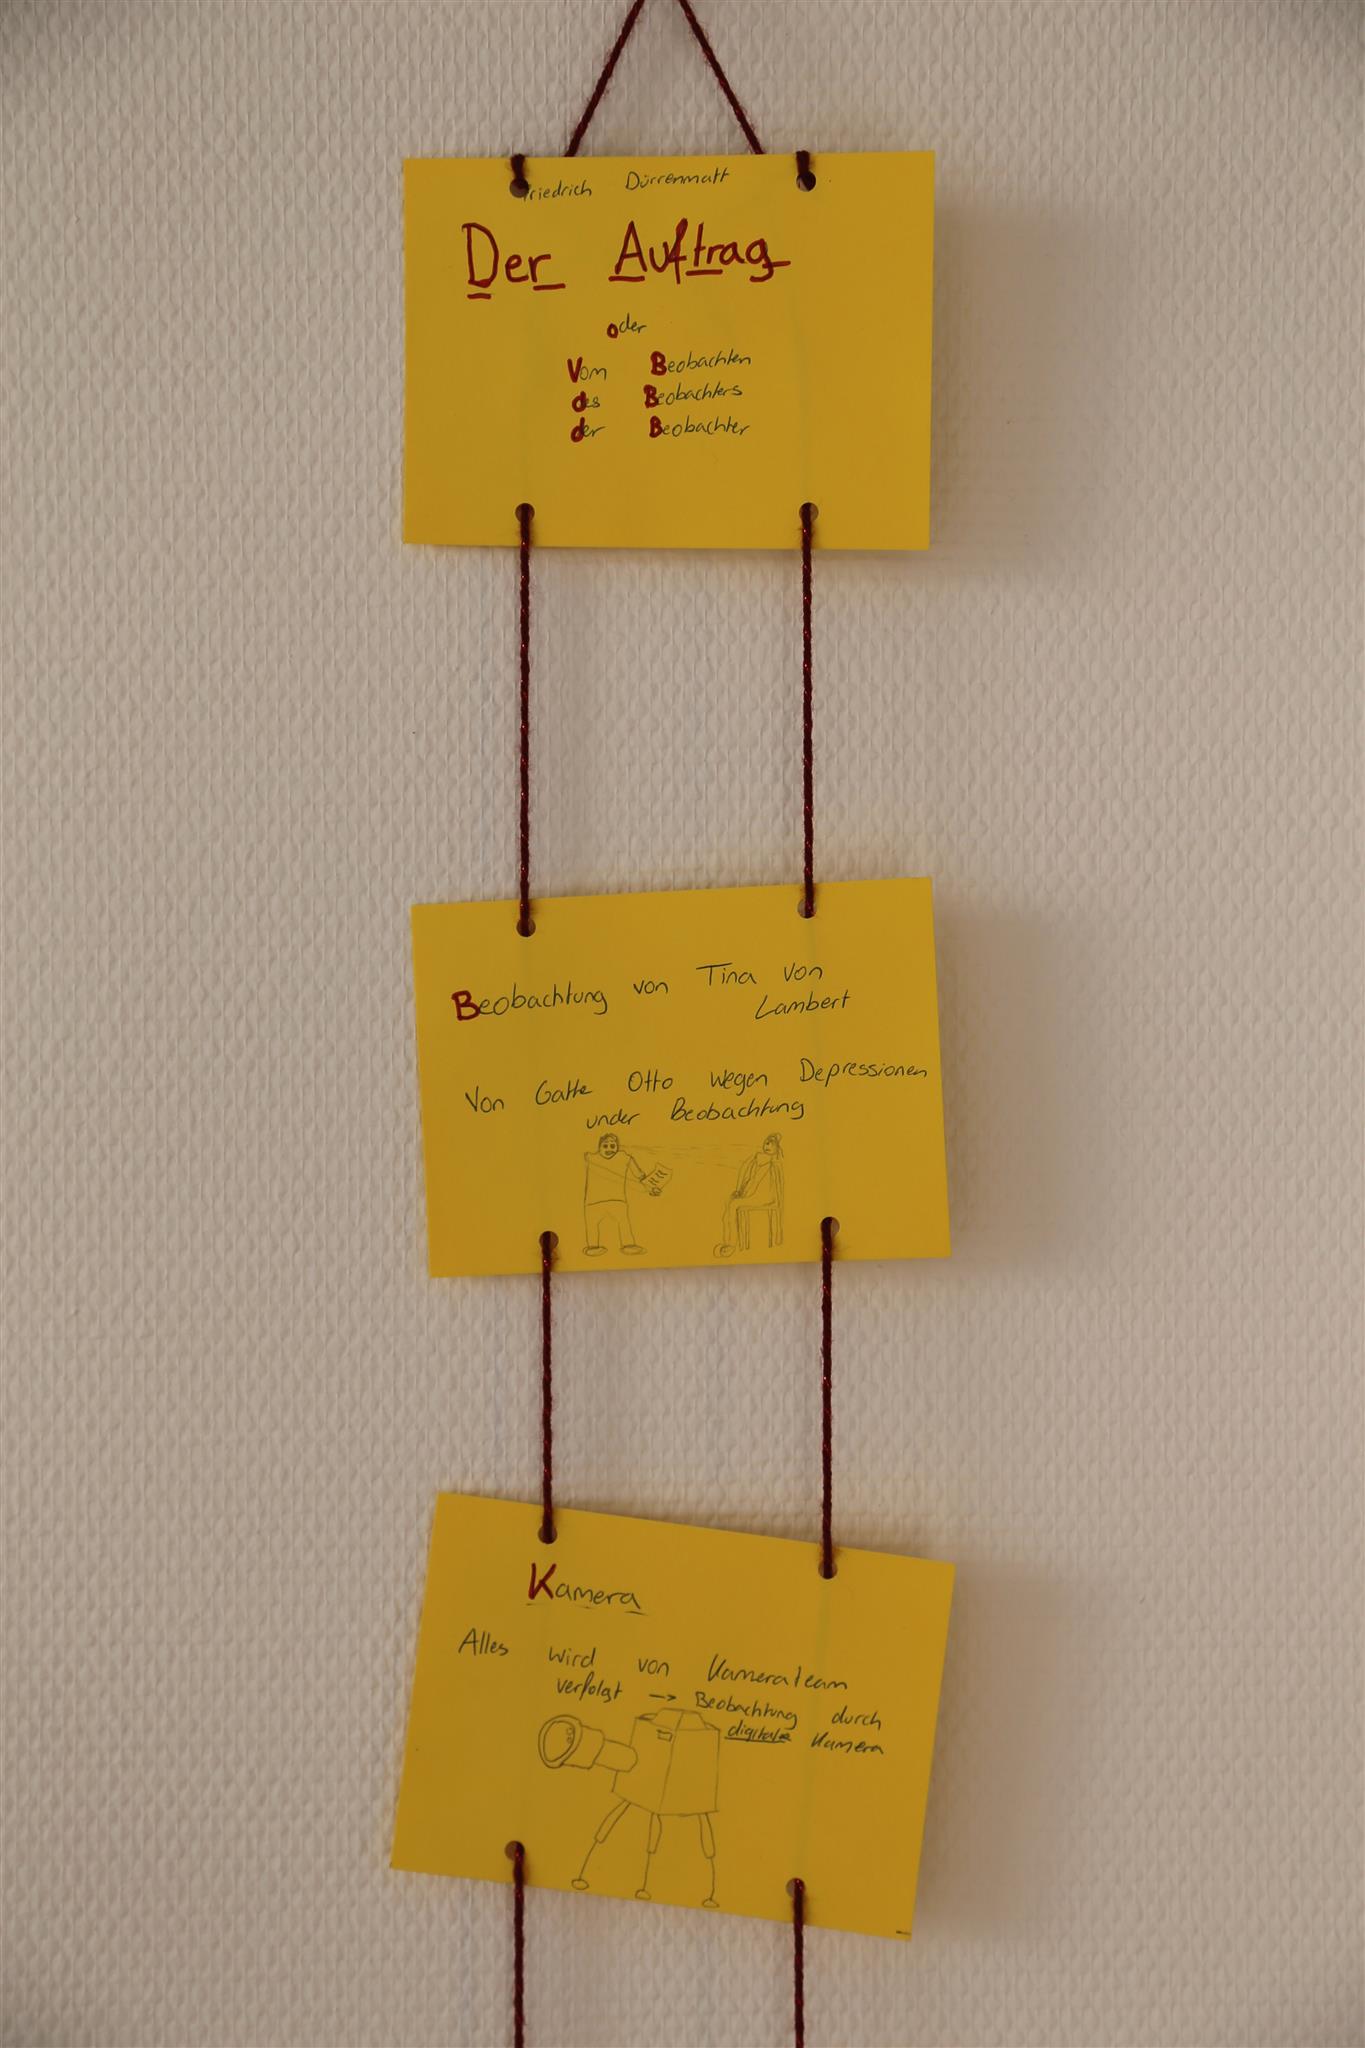 Friedrich Dürrenmatt
Der Auftrag
oder
Vom Beobachten
des Beobachters
der Beobachter
Beobachtung von Tina von
Lambert
Von Gatte Otto wegen Depressionen
under Beobachtung
Kamera
Alles wird von Kamerateam
verfolgt → Beobachtung durch
digitale Kamera